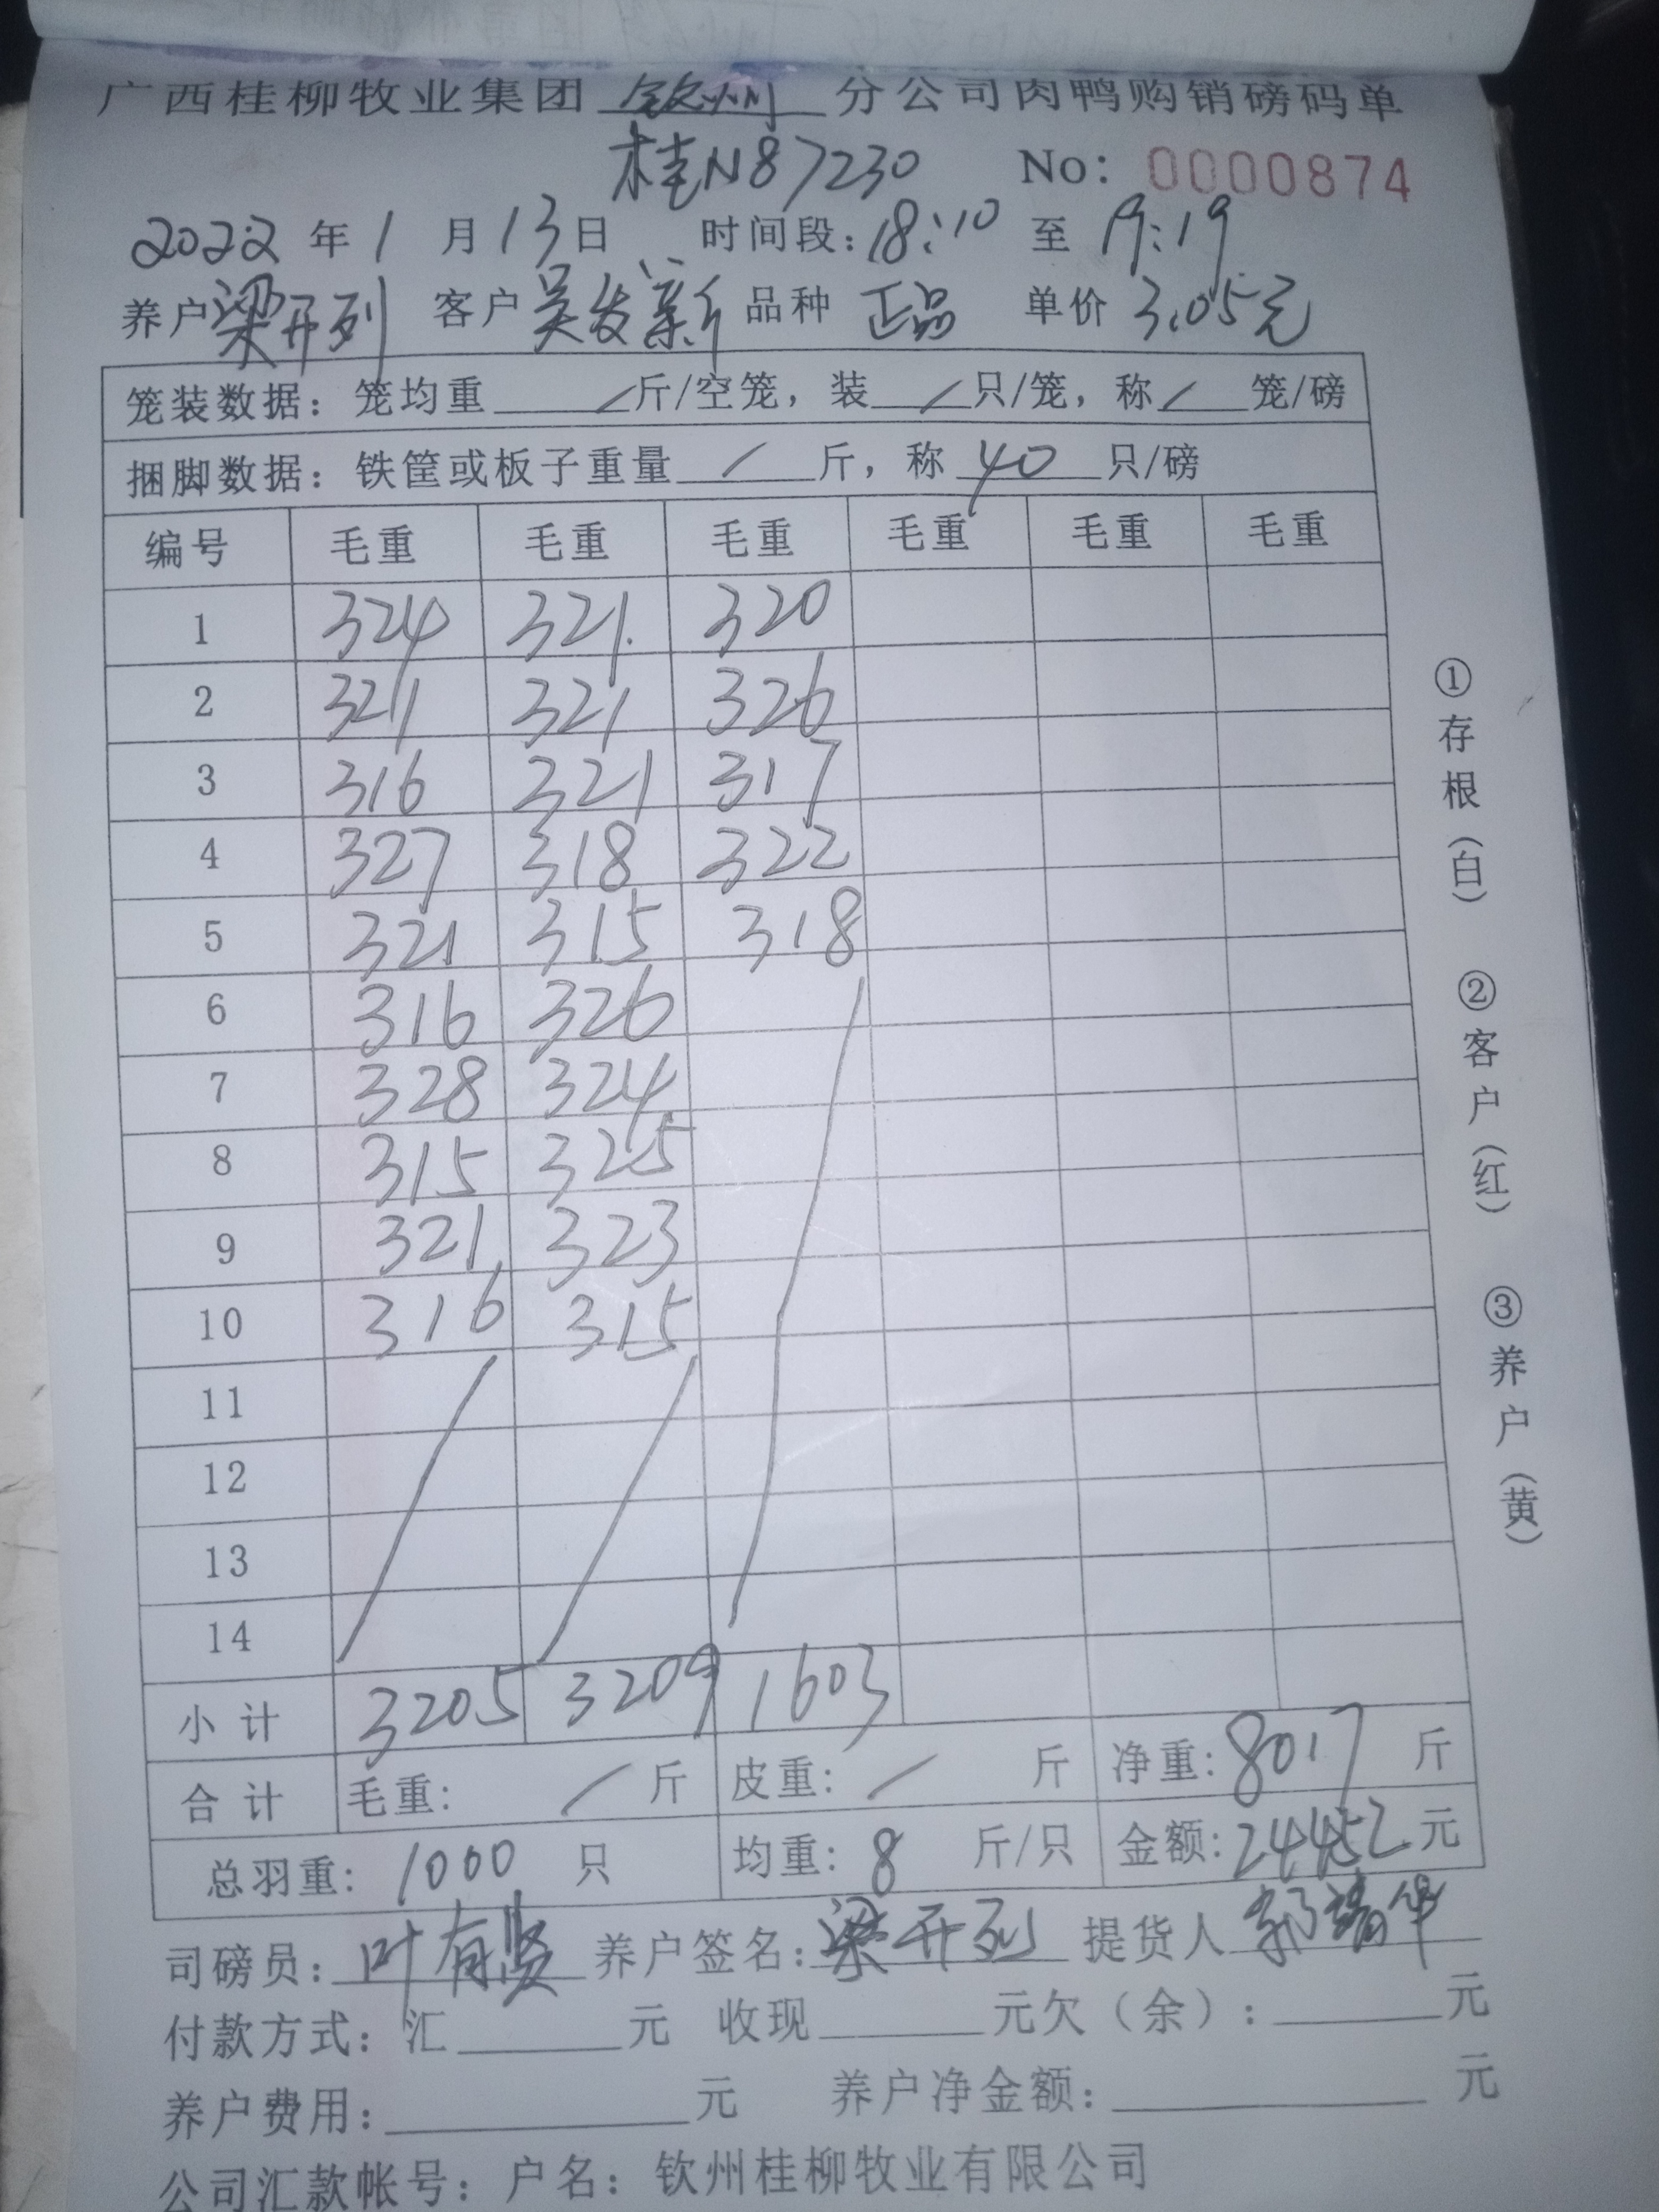 广西桂柳牧业集团 钦州 分公司肉鸭购销磅码单
桂N87230 No: 0000874
2022 年 1 月 13 日 时间段: 18:10 至 19:19
养户 梁开列 客户 吴发新 品种 正品 单价 3.05元
笼装数据: 笼均重 / 斤/空笼, 装 / 只/笼, 称 / 笼/磅
捆脚数据: 铁筐或板子重量 / 斤, 称 40 只/磅
编号 毛重 毛重 毛重 毛重 毛重 毛重
1 324 321. 320
2 321 321 326
3 316 321 317
4 327 318 322
5 321 315 318
6 316 326
7 328 324
8 315 325
9 321 323
10 316 315
11
12
13
14
小计 3205 3209 1603
合计 毛重: / 斤 皮重: / 斤 净重: 8017 斤
总羽重: 1000 只 均重: 8 斤/只 金额: 24452 元
司磅员: 叶有贤 养户签名: 梁开列 提货人
付款方式: 汇 元 收现 元欠(余): 元
养户费用: 元 养户净金额: 元
公司汇款帐号: 户名: 钦州桂柳牧业有限公司
①存根(白) ②客户(红) ③养户(黄)